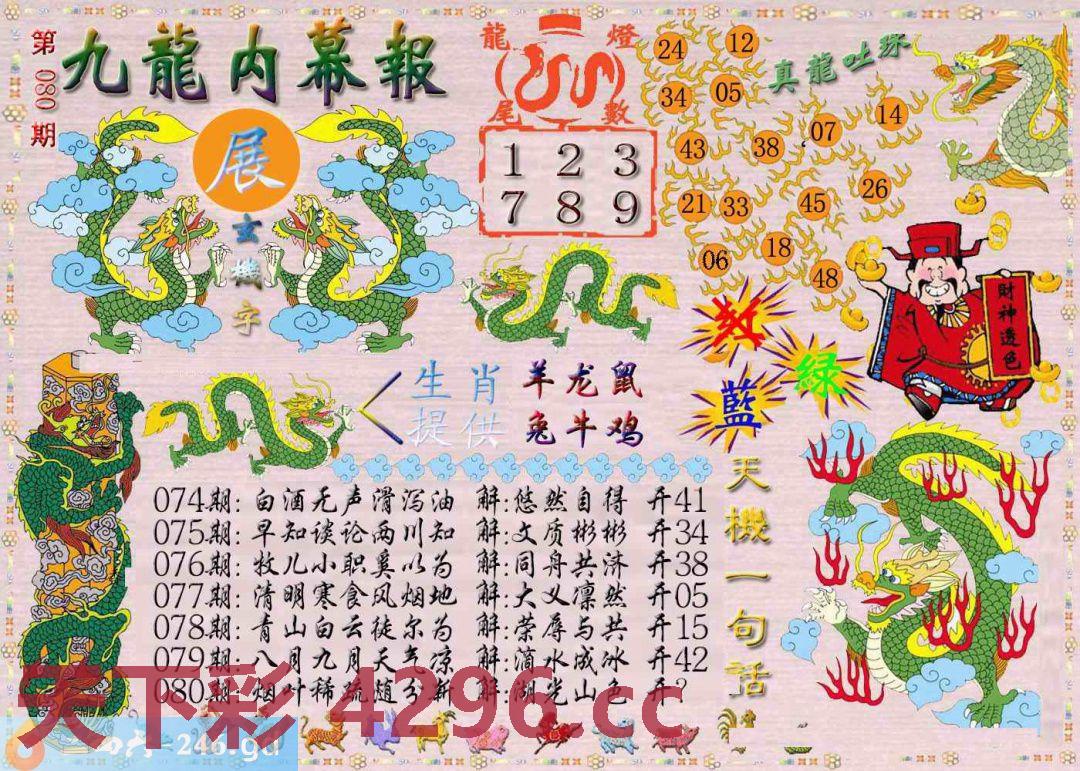 第080期
九龍内幕報
展
玄機字
龍燈
尾數
1 2 3
7 8 9
真龍吐珠
24 12
34 05
43 38 07 14
21 33 45 26
06 18 48
財神透色
紅
綠
藍
生肖
提供
羊龙鼠
兔牛鸡
天機一句話
074期:白酒无声滑泻油 解:悠然自得 开41
075期:早知谈论两川知 解:文质彬彬 开34
076期:牧儿小职奚以为 解:同舟共济 开38
077期:清明寒食风烟地 解:大义凛然 开05
078期:青山白云徒尔为 解:荣辱与共 开15
079期:八月九月天气凉 解:滴水成冰 开42
080期:烟叶稀疏随分新 解:湖光山色 开?
天下彩 4296.cc
246.gd